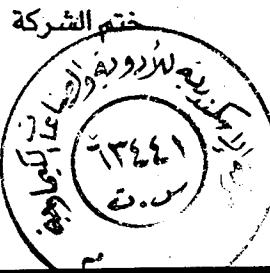 ختم الشركة
الإسكندرية للأدوية والصناعات الكيماوية
٦٣٤٤١
س.ت
م